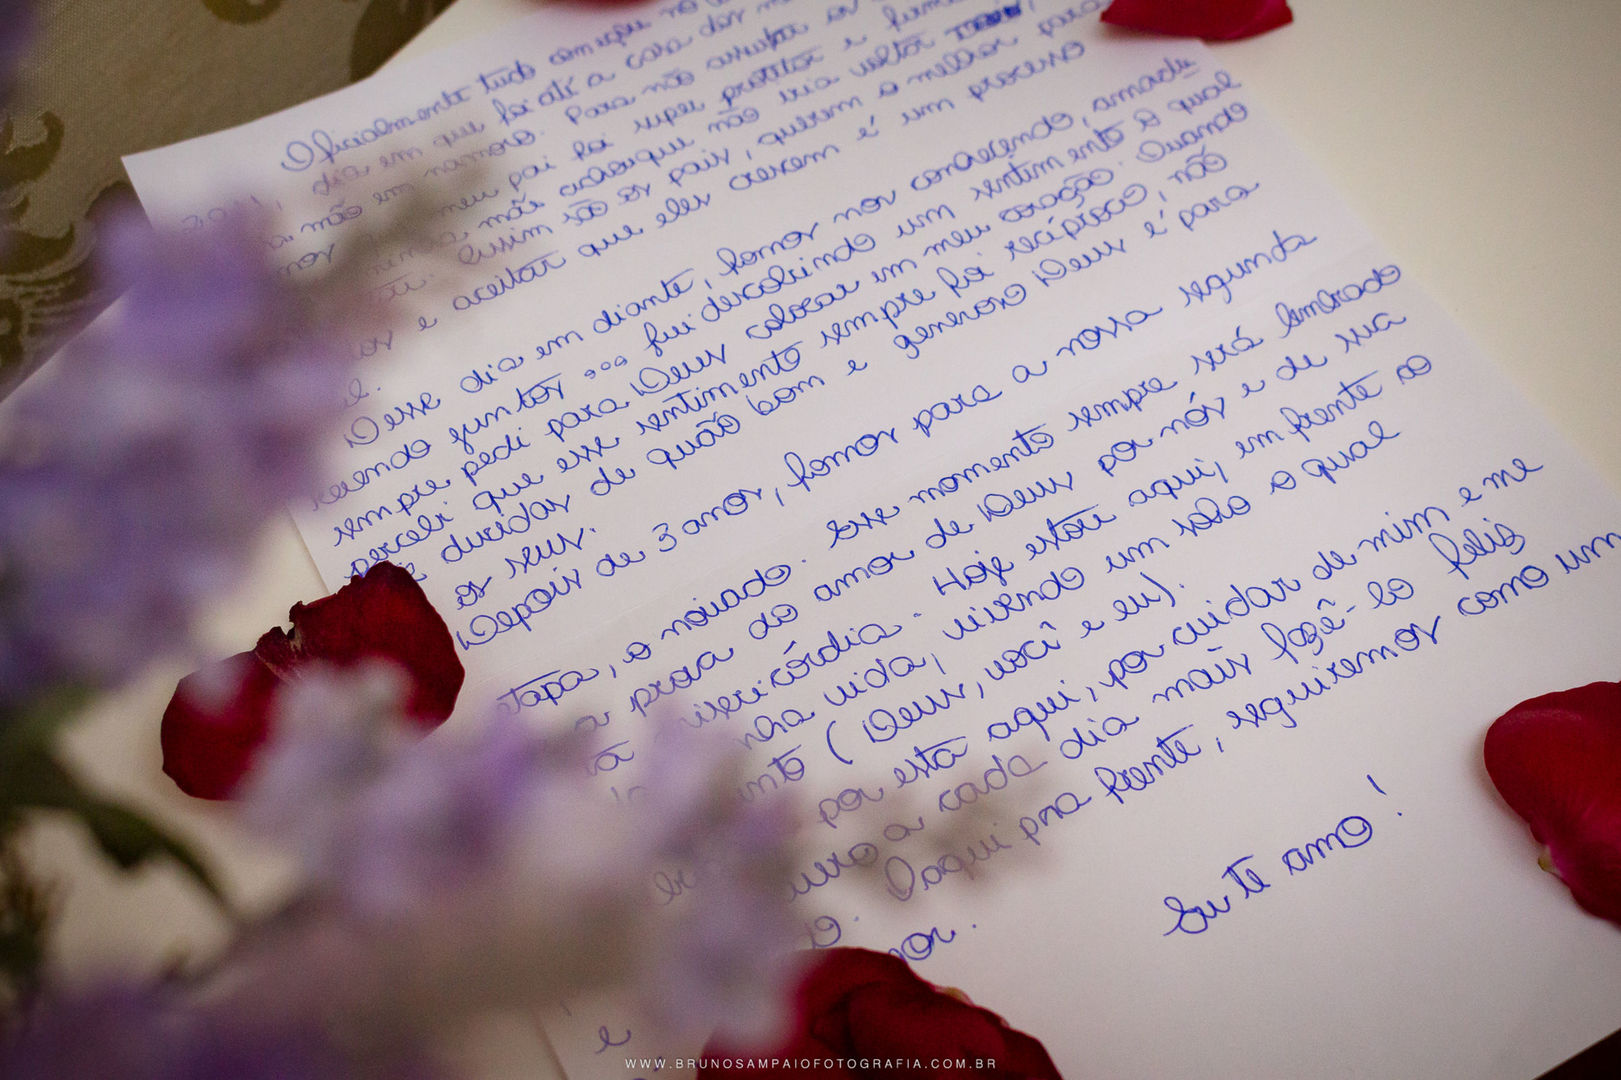 Oficialmente tudo começou no
2011, dia em que foi até a casa dos meus
a mão em namoro. Para não assustar os
nos meu pai foi super protetor e
minha mãe achou que não iria voltar
Assim são os pais, querem o melhor para
e aceitar que eles crescem é um processo
Desse dia em diante, fomos nos conhecendo, amadu
recendo juntos ... fui descobrindo um sentimento o qual
sempre pedi para Deus colocar em meu coração. Quando
percebi que esse sentimento sempre foi recíproco, não
duvidas de quão bom e generoso Deus é para
os seus.
Depois de 3 anos, fomos para a nossa segunda
etapa, o noivado. Esse momento sempre será lembrado
a prova do amor de Deus por nós e de sua
misericórdia. Hoje estou aqui, em frente ao
nha vida, vivendo um sonho o qual
(Deus, você e eu).
por está aqui, por cuidar de mim e me
a cada dia mais fazê-lo feliz
Daqui pra frente, seguiremos como um
Eu te amo!
WWW.BRUNOSAMPAIOFOTOGRAFIA.COM.BR